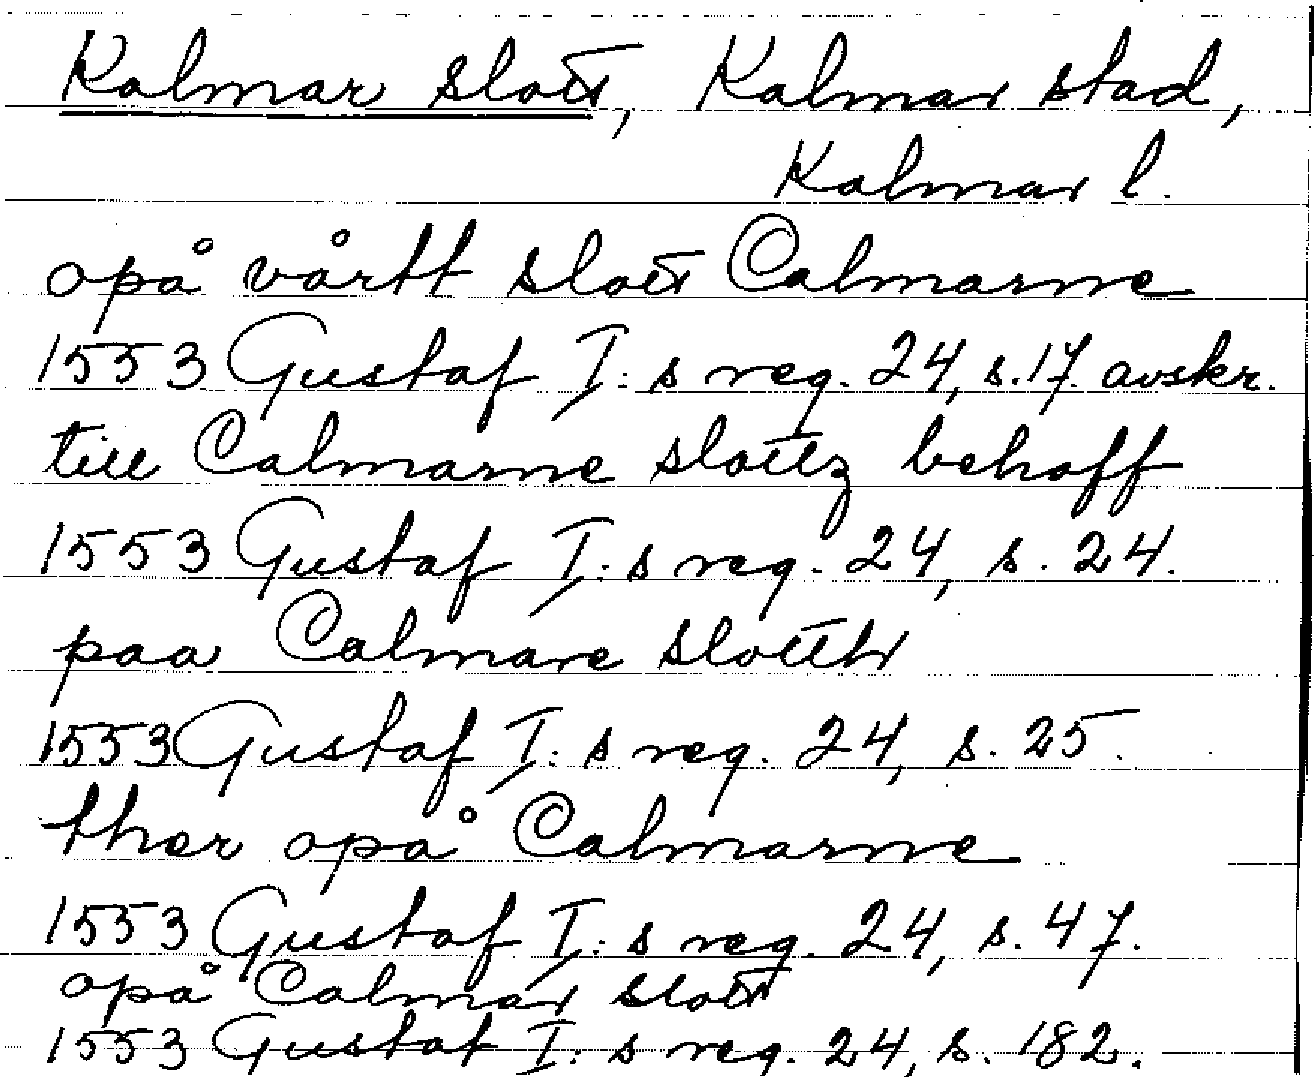 Kalmar slott, Kalmar stad,
Kalmar l.
opå vårtt slott Calmarne
1553 Gustaf I:s reg. 24, s. 17. avskr.
till Calmarne slottz behoff
1553 Gustaf I:s reg. 24, s. 24.
paa Calmare slotth
1553 Gustaf I:s reg. 24, s. 25.
ther opå Calmarne
1553 Gustaf I:s reg. 24, s. 47.
opå Calmar slott
1553 Gustaf I:s reg. 24, s. 182.